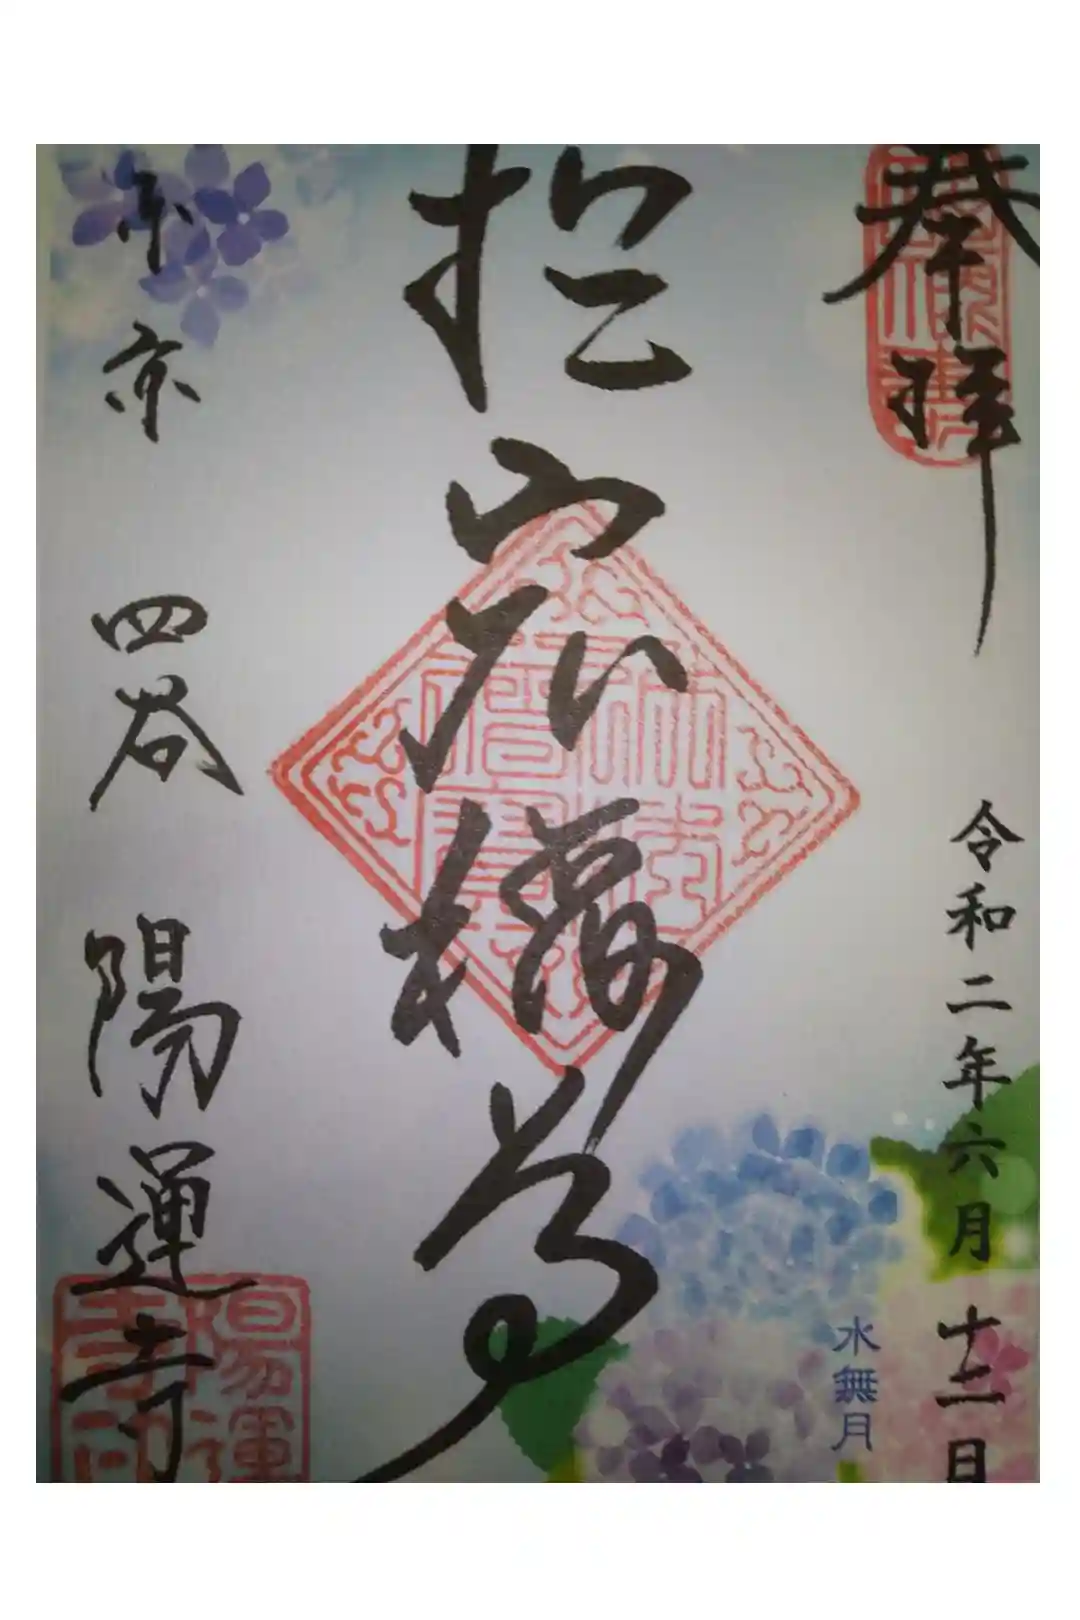 奉拝
令和二年六月十二日
水無月
於岩尊
東京 四谷 陽運寺
陽運寺印